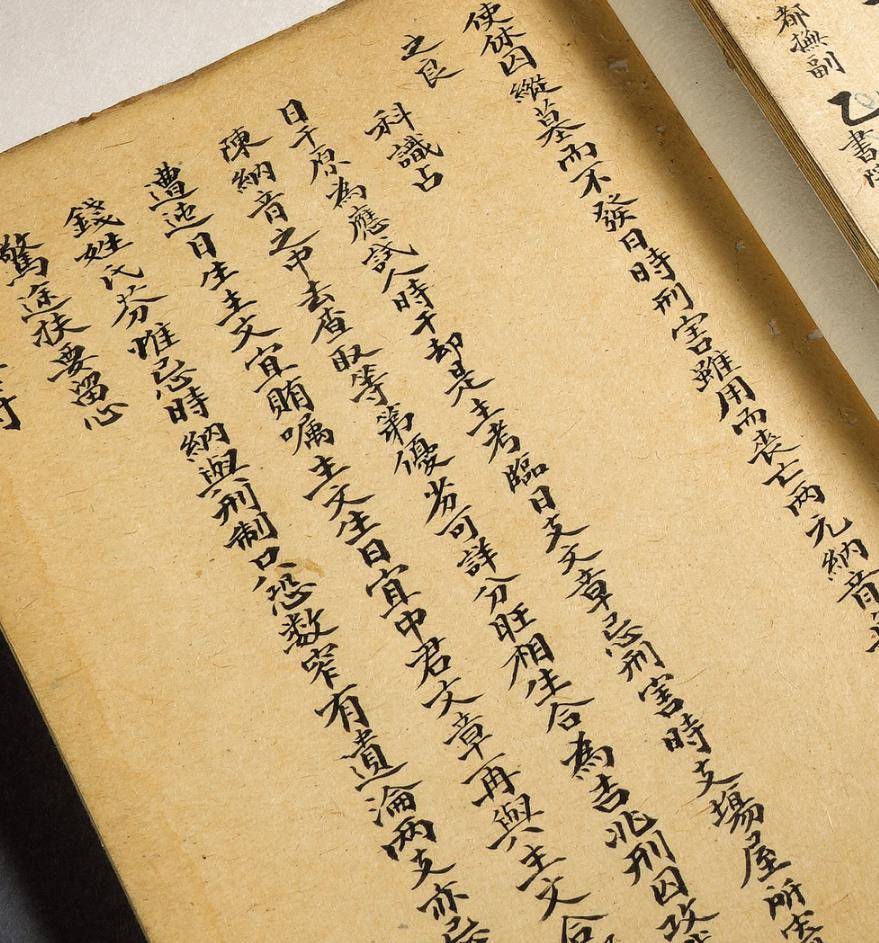 都撫副
乙書院
使休囚縱墓而不發日時刑害雖用而喪亡两元納音
之良
科識占
日干原為應試人時干却是主考臨日支文章忌刑害時支場屋所
陳納音之中去查取等第優劣可詳分旺相生合為吉兆刑囚攻
遭迍日生主文宜賄嘱主文生日宜中君文章再與主文合
錢姓氏芬惟忌時納與刑制只恐数窄有遺淪两支亦忌
驚途扶要留心